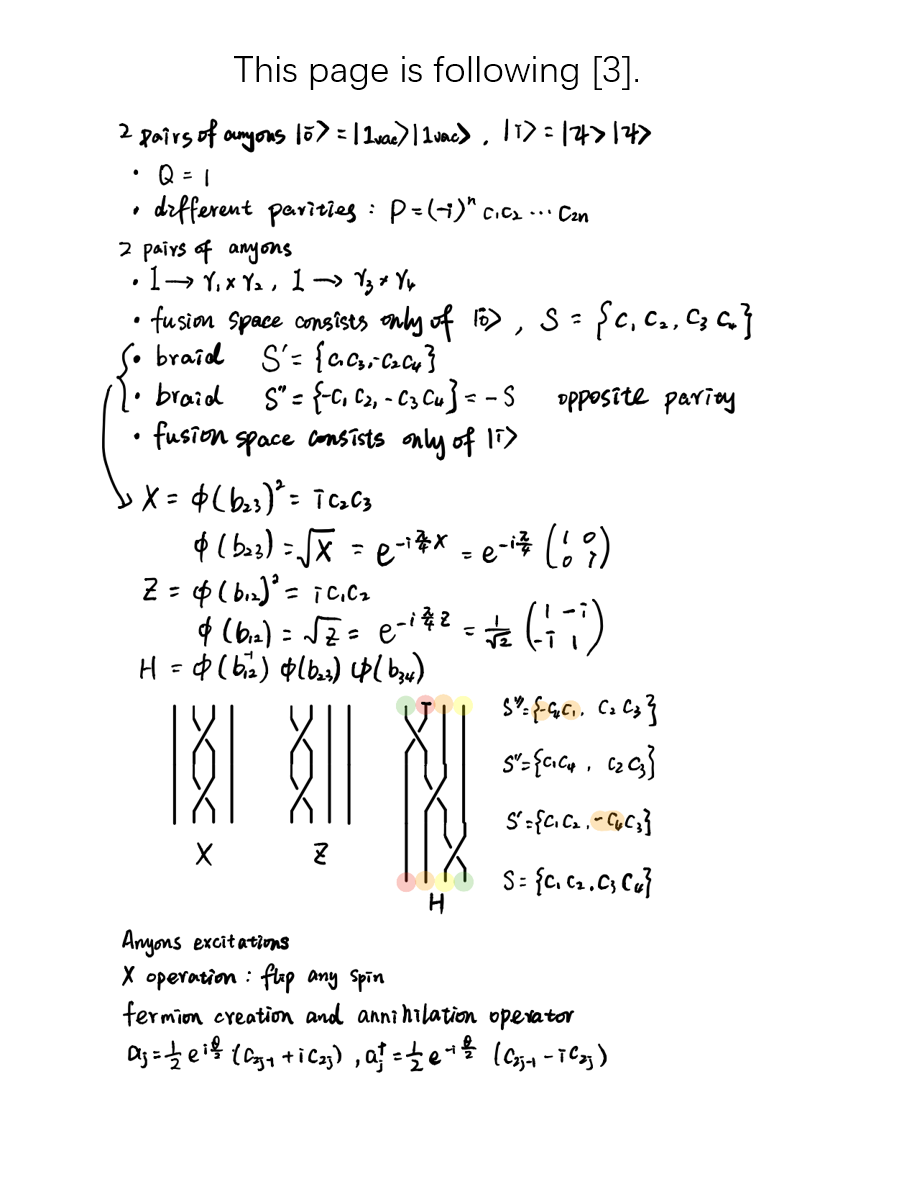 This page is following [3].
2 pairs of anyons |0̄> = |1vac>|1vac>, |1̄> = |ψ>|ψ>
· Q = 1
· different parities : P = (-i)ⁿ c₁c₂ ··· c₂ₙ
2 pairs of anyons
· 1 → γ₁ × γ₂, 1 → γ₃ × γ₄
· fusion space consists only of |0̄>, S = {c₁c₂, c₃c₄}
· braid S' = {c₁c₃, -c₂c₄}
· braid S" = {-c₁c₂, -c₃c₄} = -S opposite parity
· fusion space consists only of |1̄>
X = φ(b₂₃)² = i c₂c₃
φ(b₂₃) = √X = e^{-i π/4 X} = e^{-i π/4} (1 0
0 i)
Z = φ(b₁₂)² = i c₁c₂
φ(b₁₂) = √Z = e^{-i π/4 Z} = 1/√2 (1 -i
-i 1)
H = φ(b₁₂⁻¹) φ(b₂₃) φ(b₃₄)
S"' = {-c₄c₁, c₂c₃}
S" = {c₁c₄, c₂c₃}
S' = {c₁c₂, -c₄c₃}
S = {c₁c₂, c₃c₄}
X
Z
H
Anyons excitations
X operation : flip any spin
fermion creation and annihilation operator
aⱼ = 1/2 e^{i θ/2} (c₂ⱼ₋₁ + i c₂ⱼ), aⱼ† = 1/2 e^{-i θ/2} (c₂ⱼ₋₁ - i c₂ⱼ)